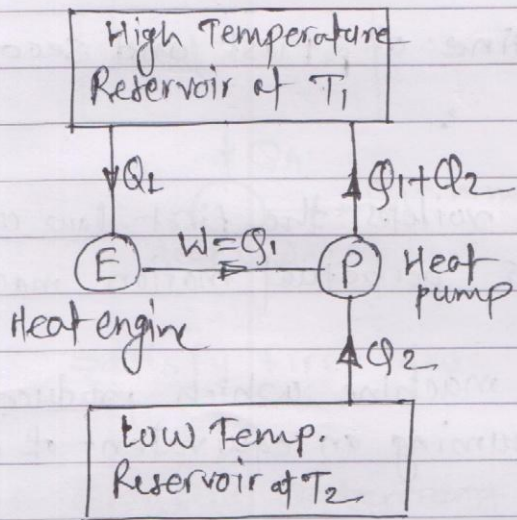 High Temperature
Reservoir at T1
Q1
Q1+Q2
W=Q1
E
P
Heat
pump
Heat engine
Q2
Low Temp.
Reservoir at T2